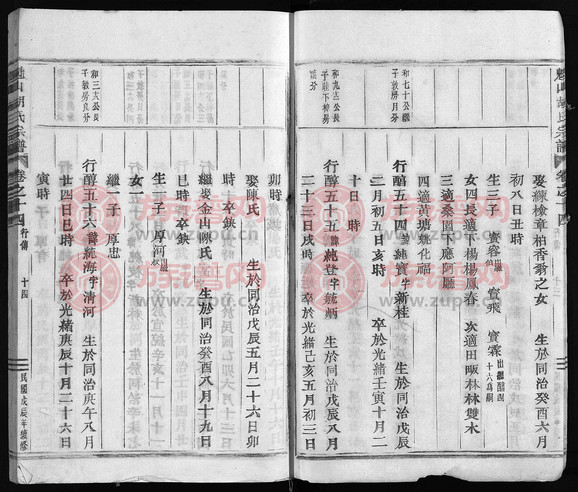 魁山胡氏宗譜 卷之十四 行傳 十三
娶練檢章柏香翁之女 生於同治癸酉六月
初八日丑時
生三子 寶容 寶飛 寶霖 出繼醇四十六爲嗣
女四長適下楊楊鳳春 次適田畈林林雙水
三適桑園廳阿廳
四適黃塘姚化福
和七十公長子敦房月分
行醇五十四諱純寶字新桂 生於同治戊辰
二月初五日亥時 卒於光緒壬寅十月二
十日 時
和九十公長子莊下禎房分
行醇五十五諱純登字毓炳 生於同治戊辰八月
二十三日戌時 卒於光緒己亥五月初三日
卯時
娶陳氏 生於同治戊辰五月二十六日卯
時 卒缺
繼娶金山陳氏 生於同治癸酉八月十九日
巳時 卒缺
生一子 厚河
女一
繼一子 厚忠
和三十六公長子敦房良分
行醇五十六諱純海字清河 生於同治庚午八月
廿四日巳時 卒於光緒庚辰十月二十六日
寅時
魁山胡氏宗譜 卷之十四 行傳 十四
民國戊辰年續修
族譜网
www.zupu.cn